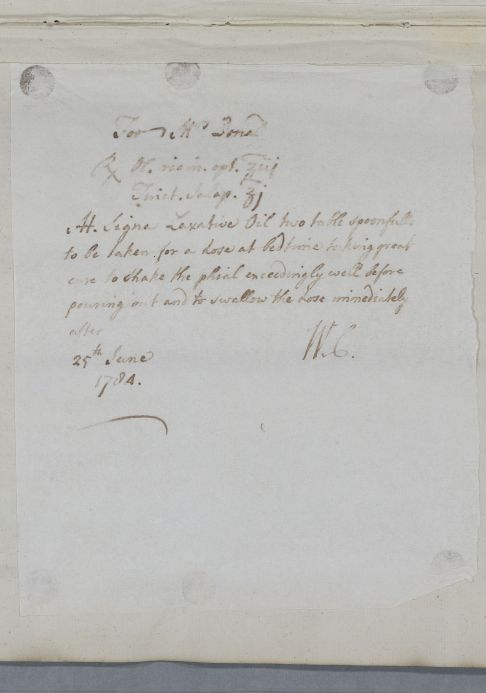 For Mr
℞ Ol. ricin. opt. ℥iij
Tinct. Jalap. ℥j
M. Signa Laxative Oil two table spoonfulls
to be taken for a dose at bedtime taking great
care to shake the phial exceedingly well before
pouring out and to swallow the dose immediately
after
25th June
1784.
W.C.